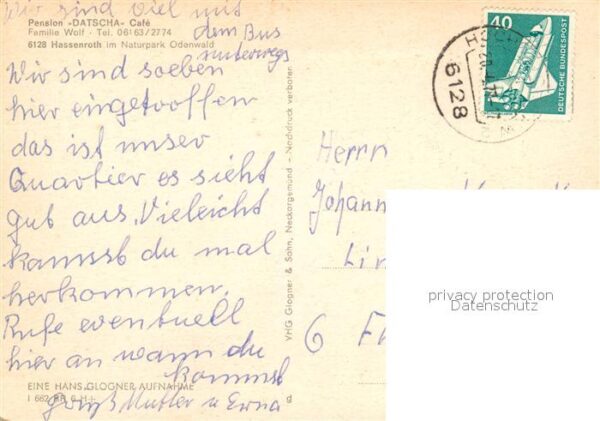 Wir sind viel mit
dem Bus
unterwegs
Pension »DATSCHA« Café
Familie Wolf - Tel. 06163/2774
6128 Hassenroth im Naturpark Odenwald
Wir sind soeben
hier eingetroffen
das ist unser
Quartier es sieht
gut aus. Vieleicht
kannst du mal
herkommen.
Rufe eventuell
hier an wann du
kommst
Gruß Mutter u Erna
EINE HANS GLOGNER AUFNAHME
VHG Glogner & Sohn, Neckargemünd - Nachdruck verboten
40
DEUTSCHE BUNDESPOST
6128
Herrn
6
privacy protection
Datenschutz